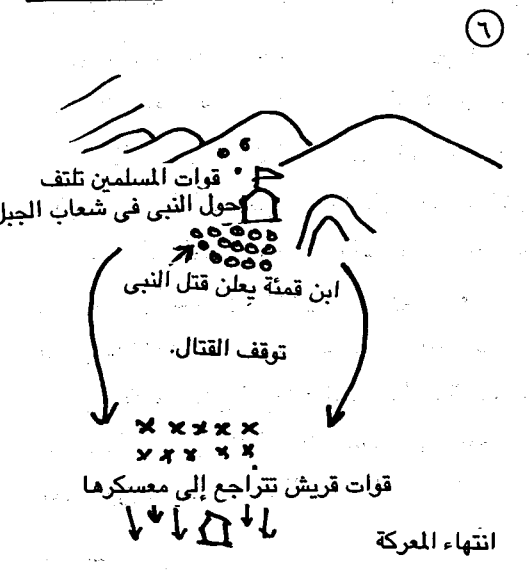 ٦
قوات المسلمين تلتف
حول النبى فى شعاب الجبل
ابن قمئة يعلن قتل النبى
توقف القتال.
قوات قريش تتراجع إلى معسكرها
انتهاء المعركة